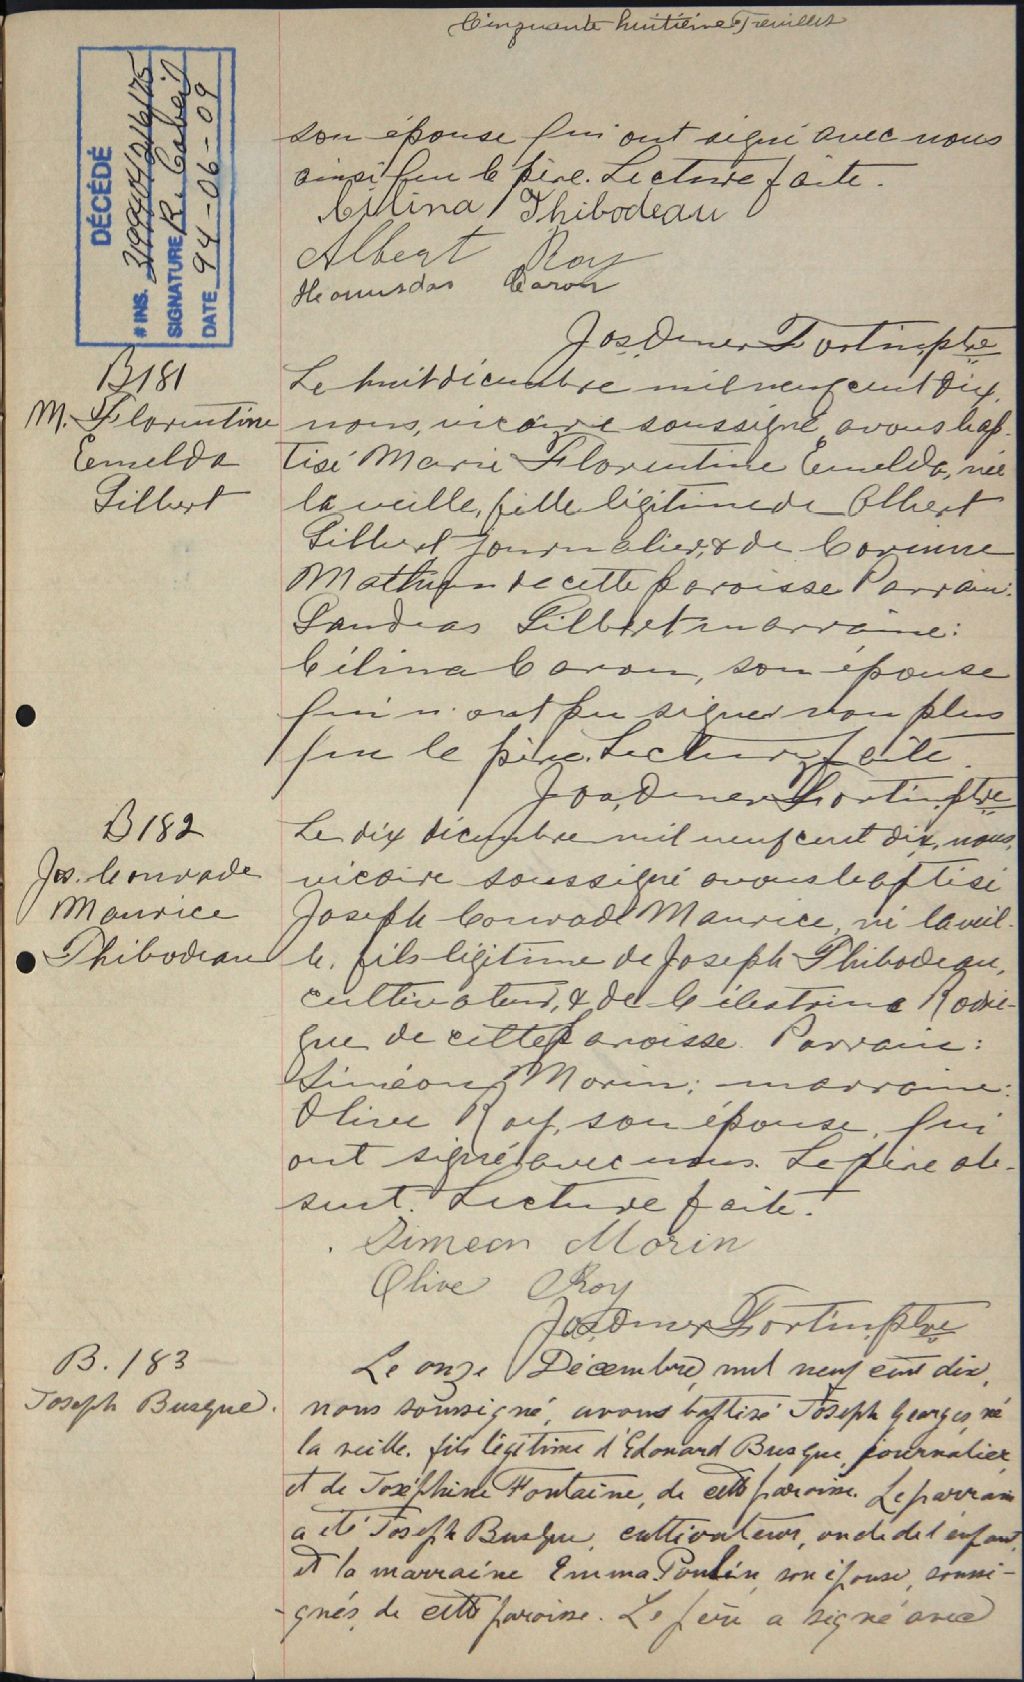 Cinquante huitième Feuillet
son épouse qui ont signé avec nous
ainsi que le père. Lecture faite.
Célina Thibodeau
Albert Roy
Caron
Jos Omer Fortin, ptre
DÉCÉDÉ
# INS.
SIGNATURE
DATE 94-06-09
B181
M. Florentine
Emelda
Gilbert
Le huit décembre mil neuf cent dix,
nous, vicaire soussigné, avons bap-
tisé Marie Florentine Emelda, née
la veille, fille légitime de Albert
Gilbert journalier, & de Corinne
Mathieu de cette paroisse Parrain:
Gilbert marraine:
Célina Caron, son épouse
qui n'ont pu signer non plus
que le père. Lecture faite.
Jos, Omer Fortin, ptre
B182
Jos. Conrade
Maurice
Thibodeau
Le dix décembre mil neuf cent dix, nous,
vicaire soussigné avons baptisé
Joseph Conrade Maurice, né la veil-
le, fils légitime de Joseph Thibodeau,
cultivateur, & de Célestine Rodri-
gue de cette paroisse. Parrain:
Siméon Morin; marraine:
Olive Roy, son épouse, qui
ont signé avec nous. Le père ab-
sent. Lecture faite.
Simeon Morin
Olive Roy
Jos Omer Fortin, ptre
B. 183
Joseph Busque.
Le onze Décembre, mil neuf cent dix,
nous soussigné, avons baptisé Joseph Georges, né
la veille, fils légitime d'Edouard Busque, journalier,
et de Joséphine Fontaine, de cette paroisse. Le parrain
a été Joseph Busque, cultivateur, oncle de l'enfant,
et la marraine Emma Poulin, son épouse, soussi-
-gnés, de cette paroisse. Le père a signé avec